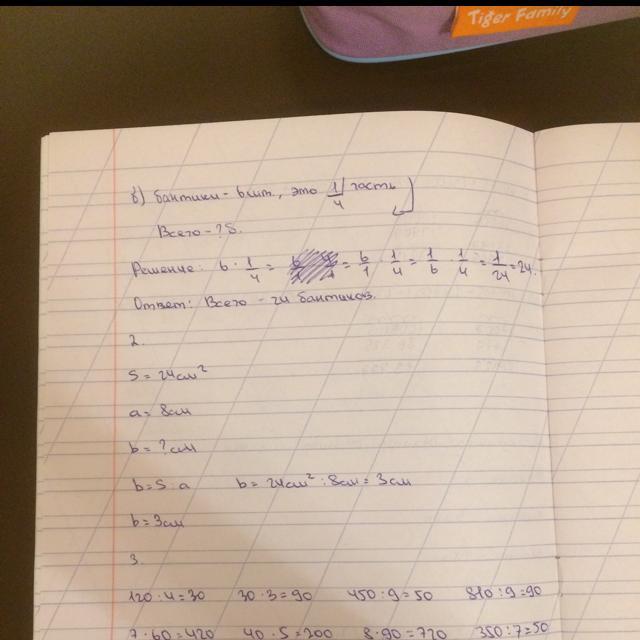 Tiger Family
б) бантики - 6 шт., это 1/4 часть
Всего - ?
Решение: 6 · 1/4 = = 6/1 · 1/4 = 1/6 · 1/4 = 1/24 = 24.
Ответ: Всего - 24 бантиков.
2.
S = 24 см²
a = 8 см
b = ? см
b = S : a b = 24 см² : 8 см = 3 см
b = 3 см
3.
120 : 4 = 30 30 · 3 = 90 450 : 9 = 50 810 : 9 = 90
7 · 60 = 420 40 · 5 = 200 8 · 90 = 720 350 : 7 = 50